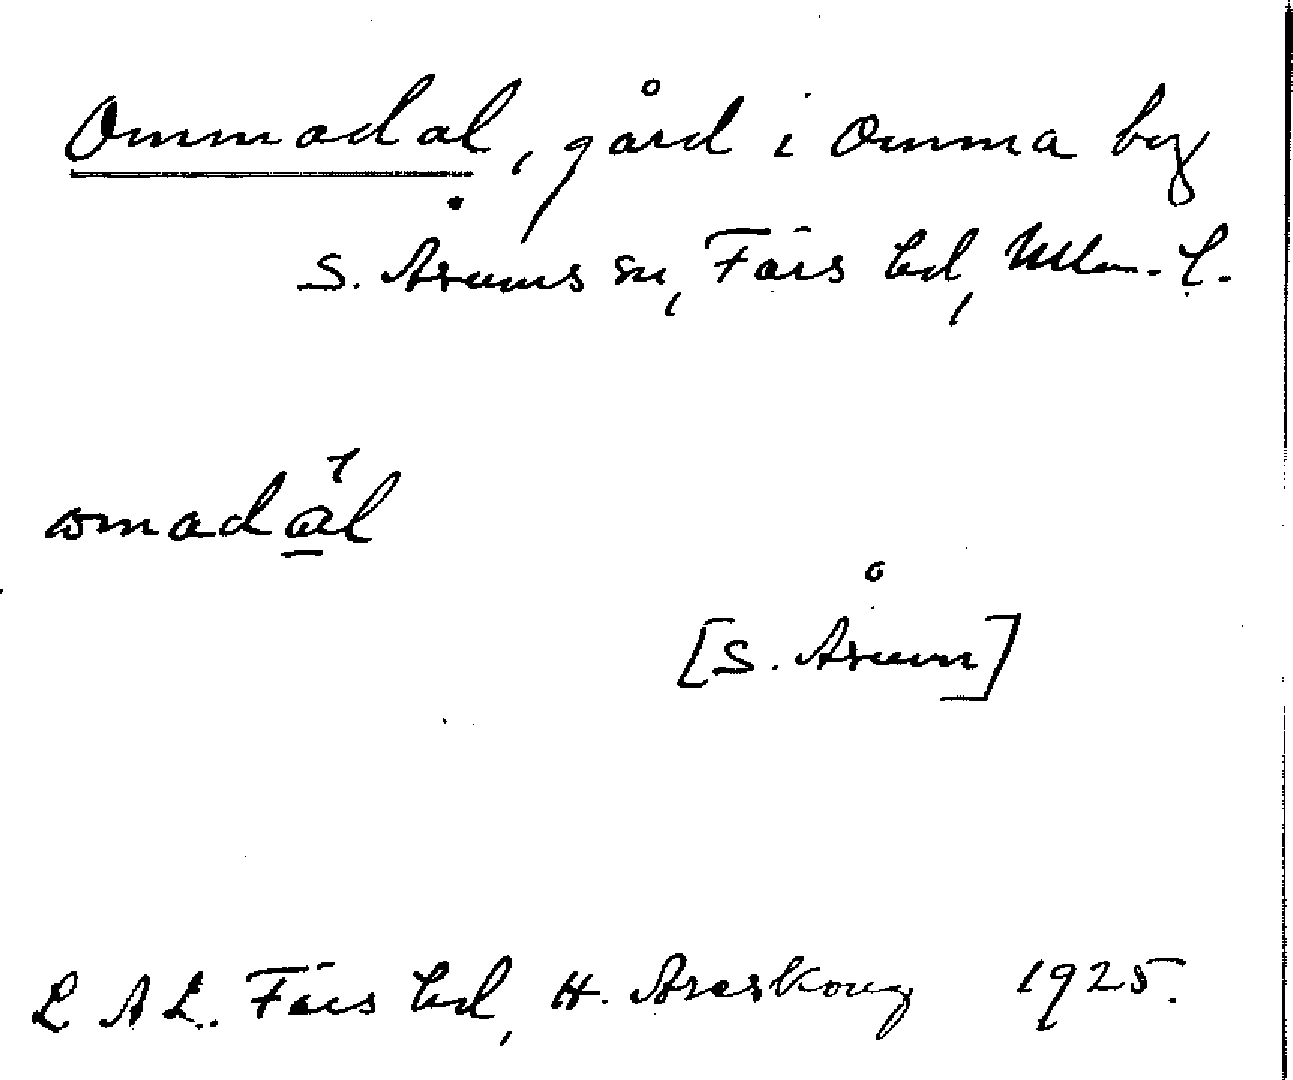 Ommadal, gård i Omma by
S. Åsums sn, Färs hd, Mlm. l.
omadāl
[S. Åsum]
L A L. Färs hd, H. Areskoug 1925.